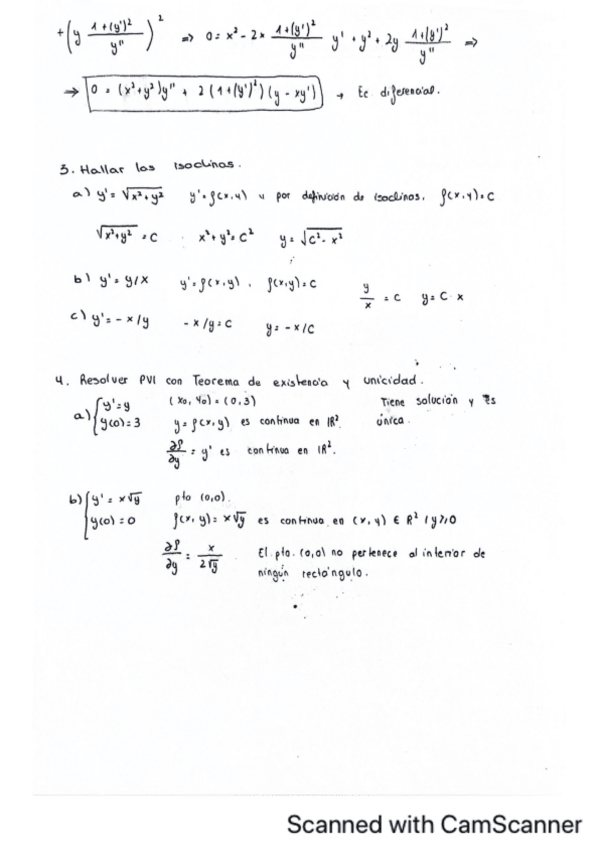 +(y (1+(y')²)/y'')² => 0 = x² - 2x (1+(y')²)/y'' y' + y² + 2y (1+(y')²)/y'' =>
=> 0 = (x²+y²)y'' + 2(1+(y')²)(y - xy') → Ec diferencial.
3. Hallar las Isoclinas.
a) y' = √(x²+y²) y' = f(x,y) y por definición de isoclinas, f(x,y)=C
√(x²+y²) = C x²+y² = C² y = √(C²-x²)
b) y' = y/x y' = f(x,y) . f(x,y) = C y/x = C y = C·x
c) y' = -x/y -x/y = C y = -x/C
4. Resolver PVI con Teorema de existencia y unicidad.
a) { y' = y (x₀, y₀) = (0,3) Tiene solución y es
y(0) = 3 y = f(x,y) es continua en ℝ². única.
∂f/∂y = y' es continua en ℝ².
b) { y' = x√y pto (0,0).
y(0) = 0 f(x,y) = x√y es continua en (x,y) ∈ ℝ² / y≥0
∂f/∂y = x/(2√y) El pto. (0,0) no pertenece al interior de
ningún rectángulo.
Scanned with CamScanner